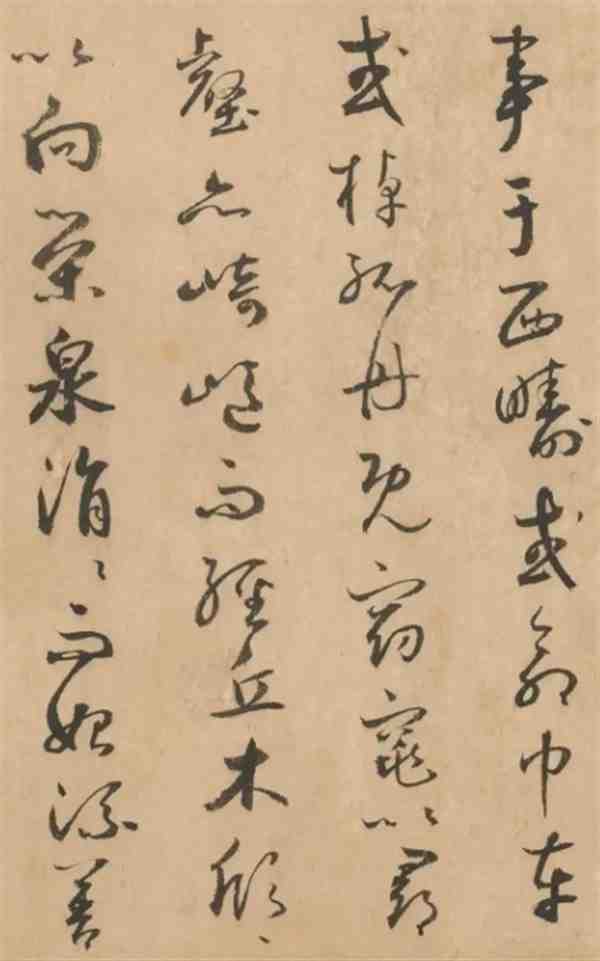 事于西疇或命巾車
或棹孤舟既窈窕以尋
壑亦崎嶇而經丘木欣〻
以向榮泉涓〻而始流善